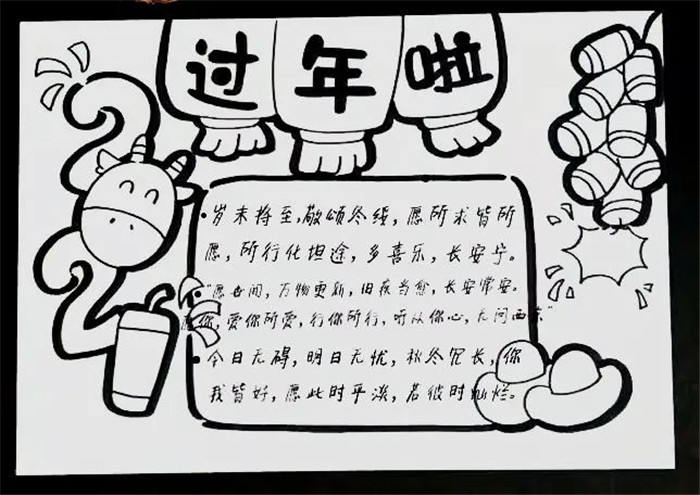 过年啦
岁末将至,敬颂冬绥,愿所求皆所
愿,所行化坦途,多喜乐,长安宁。
"愿世间,万物更新,旧疾当愈,长安常安。
愿你,爱你所爱,行你所行,听从你心,无问西东"
今日无碍,明日无忧,秋冬冗长,你
我皆好,愿此时平淡,若彼时灿烂。